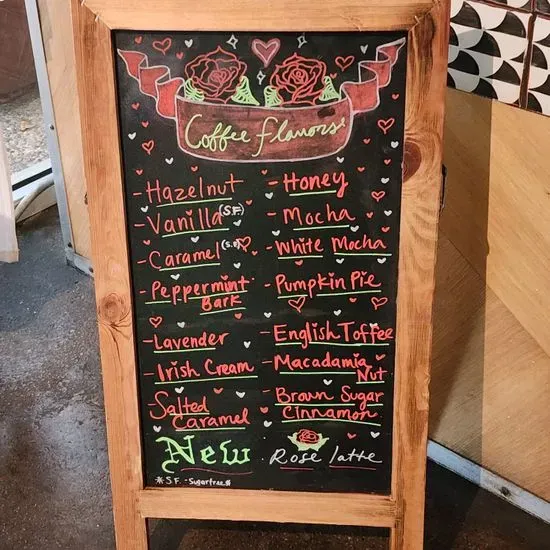 Coffee flavors:
- Hazelnut
- Vanilla (S.F.)
- Caramel (S.F.)
- Peppermint
Bark
- Lavender
- Irish Cream
Salted
Caramel
- Honey
- Mocha
- White Mocha
- Pumpkin Pie
- English Toffee
- Macadamia
Nut
- Brown Sugar
Cinnamon
New Rose latte
*S.F. - Sugarfree*